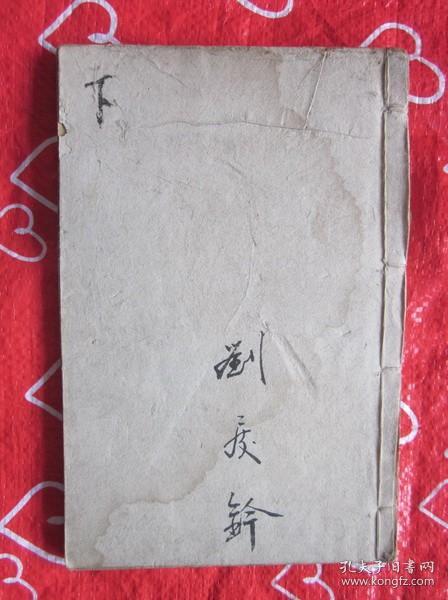 下
劉
鈐
孔夫子旧书网
www.kongfz.com